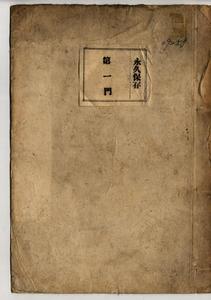 永久保存
第一門